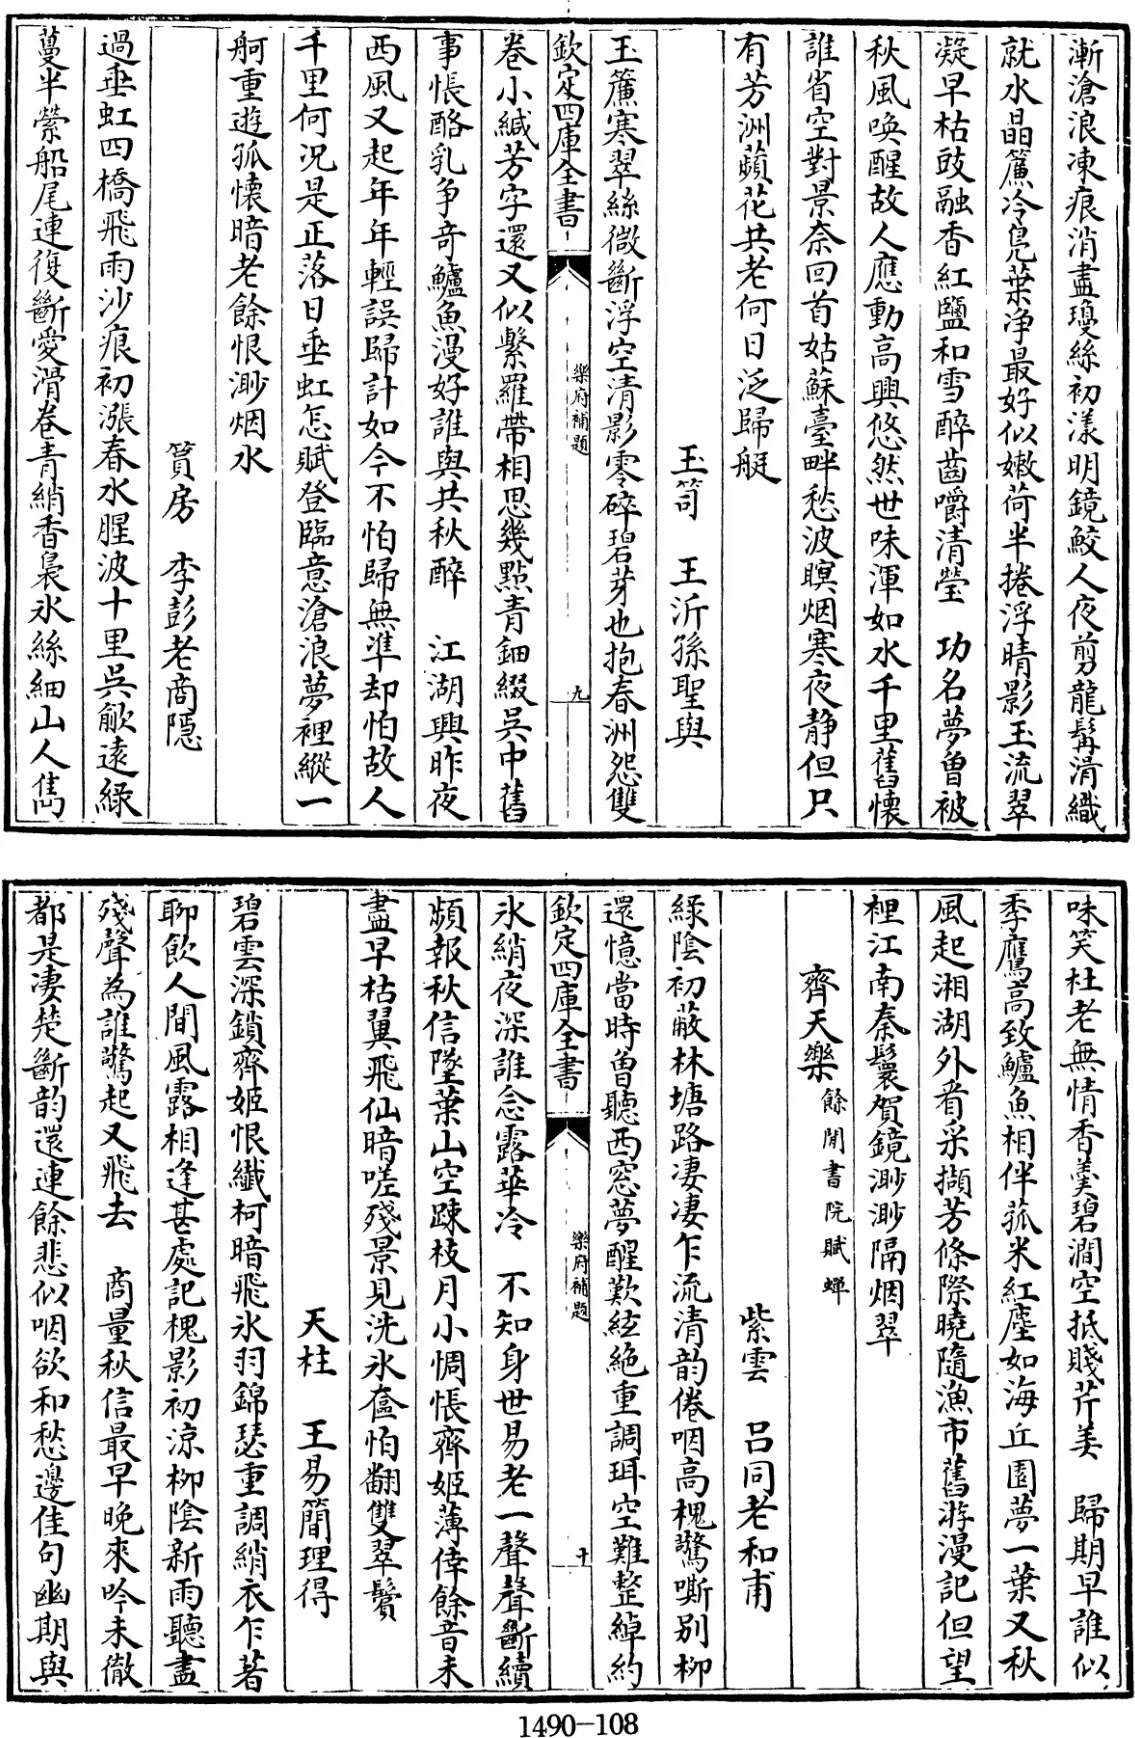 漸滄浪凍痕消盡瓊絲初漾明鏡鮫人夜剪龍髯滑織
就水晶簾冷鳧葉净最好似嫩荷半捲浮晴影玉流翠
凝早枯豉融香紅鹽和雪醉齒嚼清瑩　功名夢曾被
秋風喚醒故人應動高興悠然世味渾如水千里舊懷
誰省空對景奈回首姑蘇臺畔愁波暝烟寒夜静但只
有芳洲蘋花共老何日泛歸艇
玉笥　王沂孫聖與
玉簾寒翠絲微斷浮空清影零碎碧芽也抱春洲怨雙
欽定四庫全書　樂府補題　九
卷小緘芳字還又似繫羅帶相思幾點青鈿綴吳中舊
事悵酪乳争奇鱸魚漫好誰與共秋醉　江湖興昨夜
西風又起年年輕誤歸計如今不怕歸無準却怕故人
千里何況是正落日垂虹怎賦登臨意滄浪夢裡縱一
舸重遊孤懷暗老餘恨渺烟水
篔房　李彭老商隱
過垂虹四橋飛雨沙痕初漲春水腥波十里吳歈遠綠
蔓半縈船尾連復斷愛滑卷青綃香裊氷絲細山人雋
味笑杜老無情香羮碧澗空抵賤芹美　歸期早誰似
季鷹高致鱸魚相伴菰米紅塵如海丘園夢一葉又秋
風起湘湖外看采擷芳條際曉隨漁市舊游漫記但望
裡江南秦鬟賀鏡渺渺隔烟翠
齊天樂餘閒書院賦蟬
紫雲　呂同老和甫
綠陰初蔽林塘路凄凄乍流清韵倦咽高槐驚嘶别柳
還憶當時曾聽西窓夢醒歎絃絶重調珥空難整綽約
欽定四庫全書　樂府補題　十
氷綃夜深誰念露華冷　不知身世易老一聲聲斷續
頻報秋信墜葉山空疎枝月小惆悵齊姬薄倖餘音未
盡早枯翼飛仙暗嗟殘景見洗氷奩怕翻雙翠鬢
天柱　王易簡理得
碧雲深鎖齊姬恨纎柯暗飛氷羽錦瑟重調綃衣乍著
聊飲人間風露相逢甚處記槐影初涼柳陰新雨聽盡
殘聲為誰驚起又飛去　商量秋信最早晚來吟未徹
都是凄楚斷韵還連餘悲似咽欲和愁邊佳句幽期與
1490-108